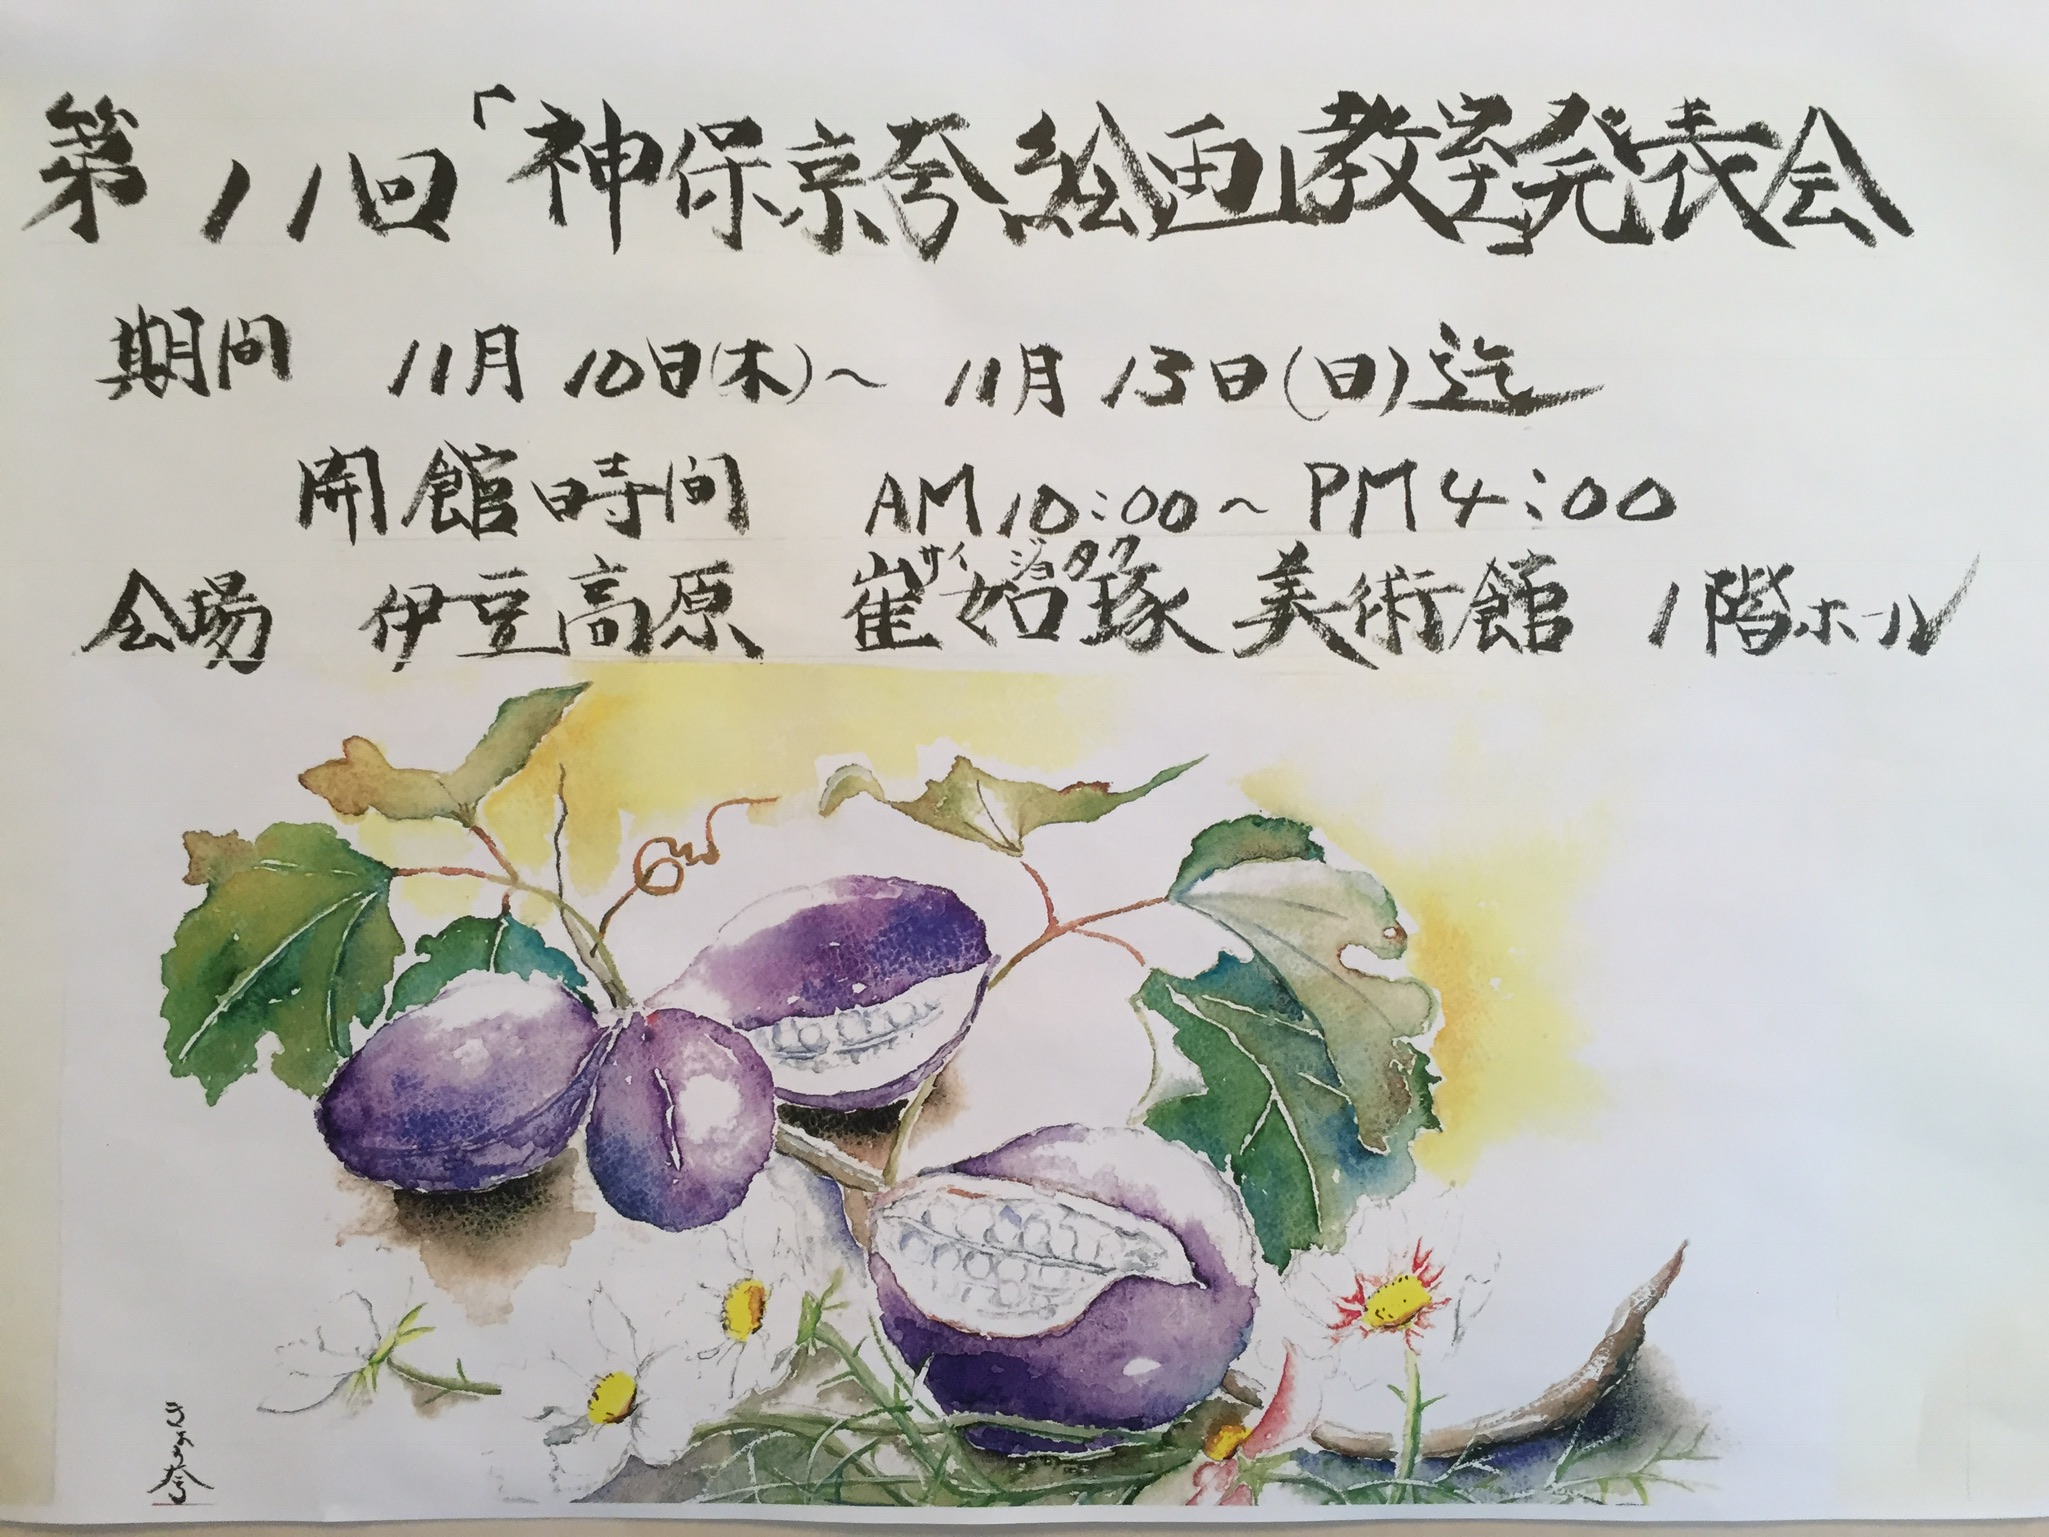 第11回「神保京夸絵画教室」発表会
期間 11月10日(木)～11月13日(日)迄
開館時間 AM10:00～PM4:00
サイ ジョ タク
会場 伊豆高原 崔如琢美術館 1階ホール